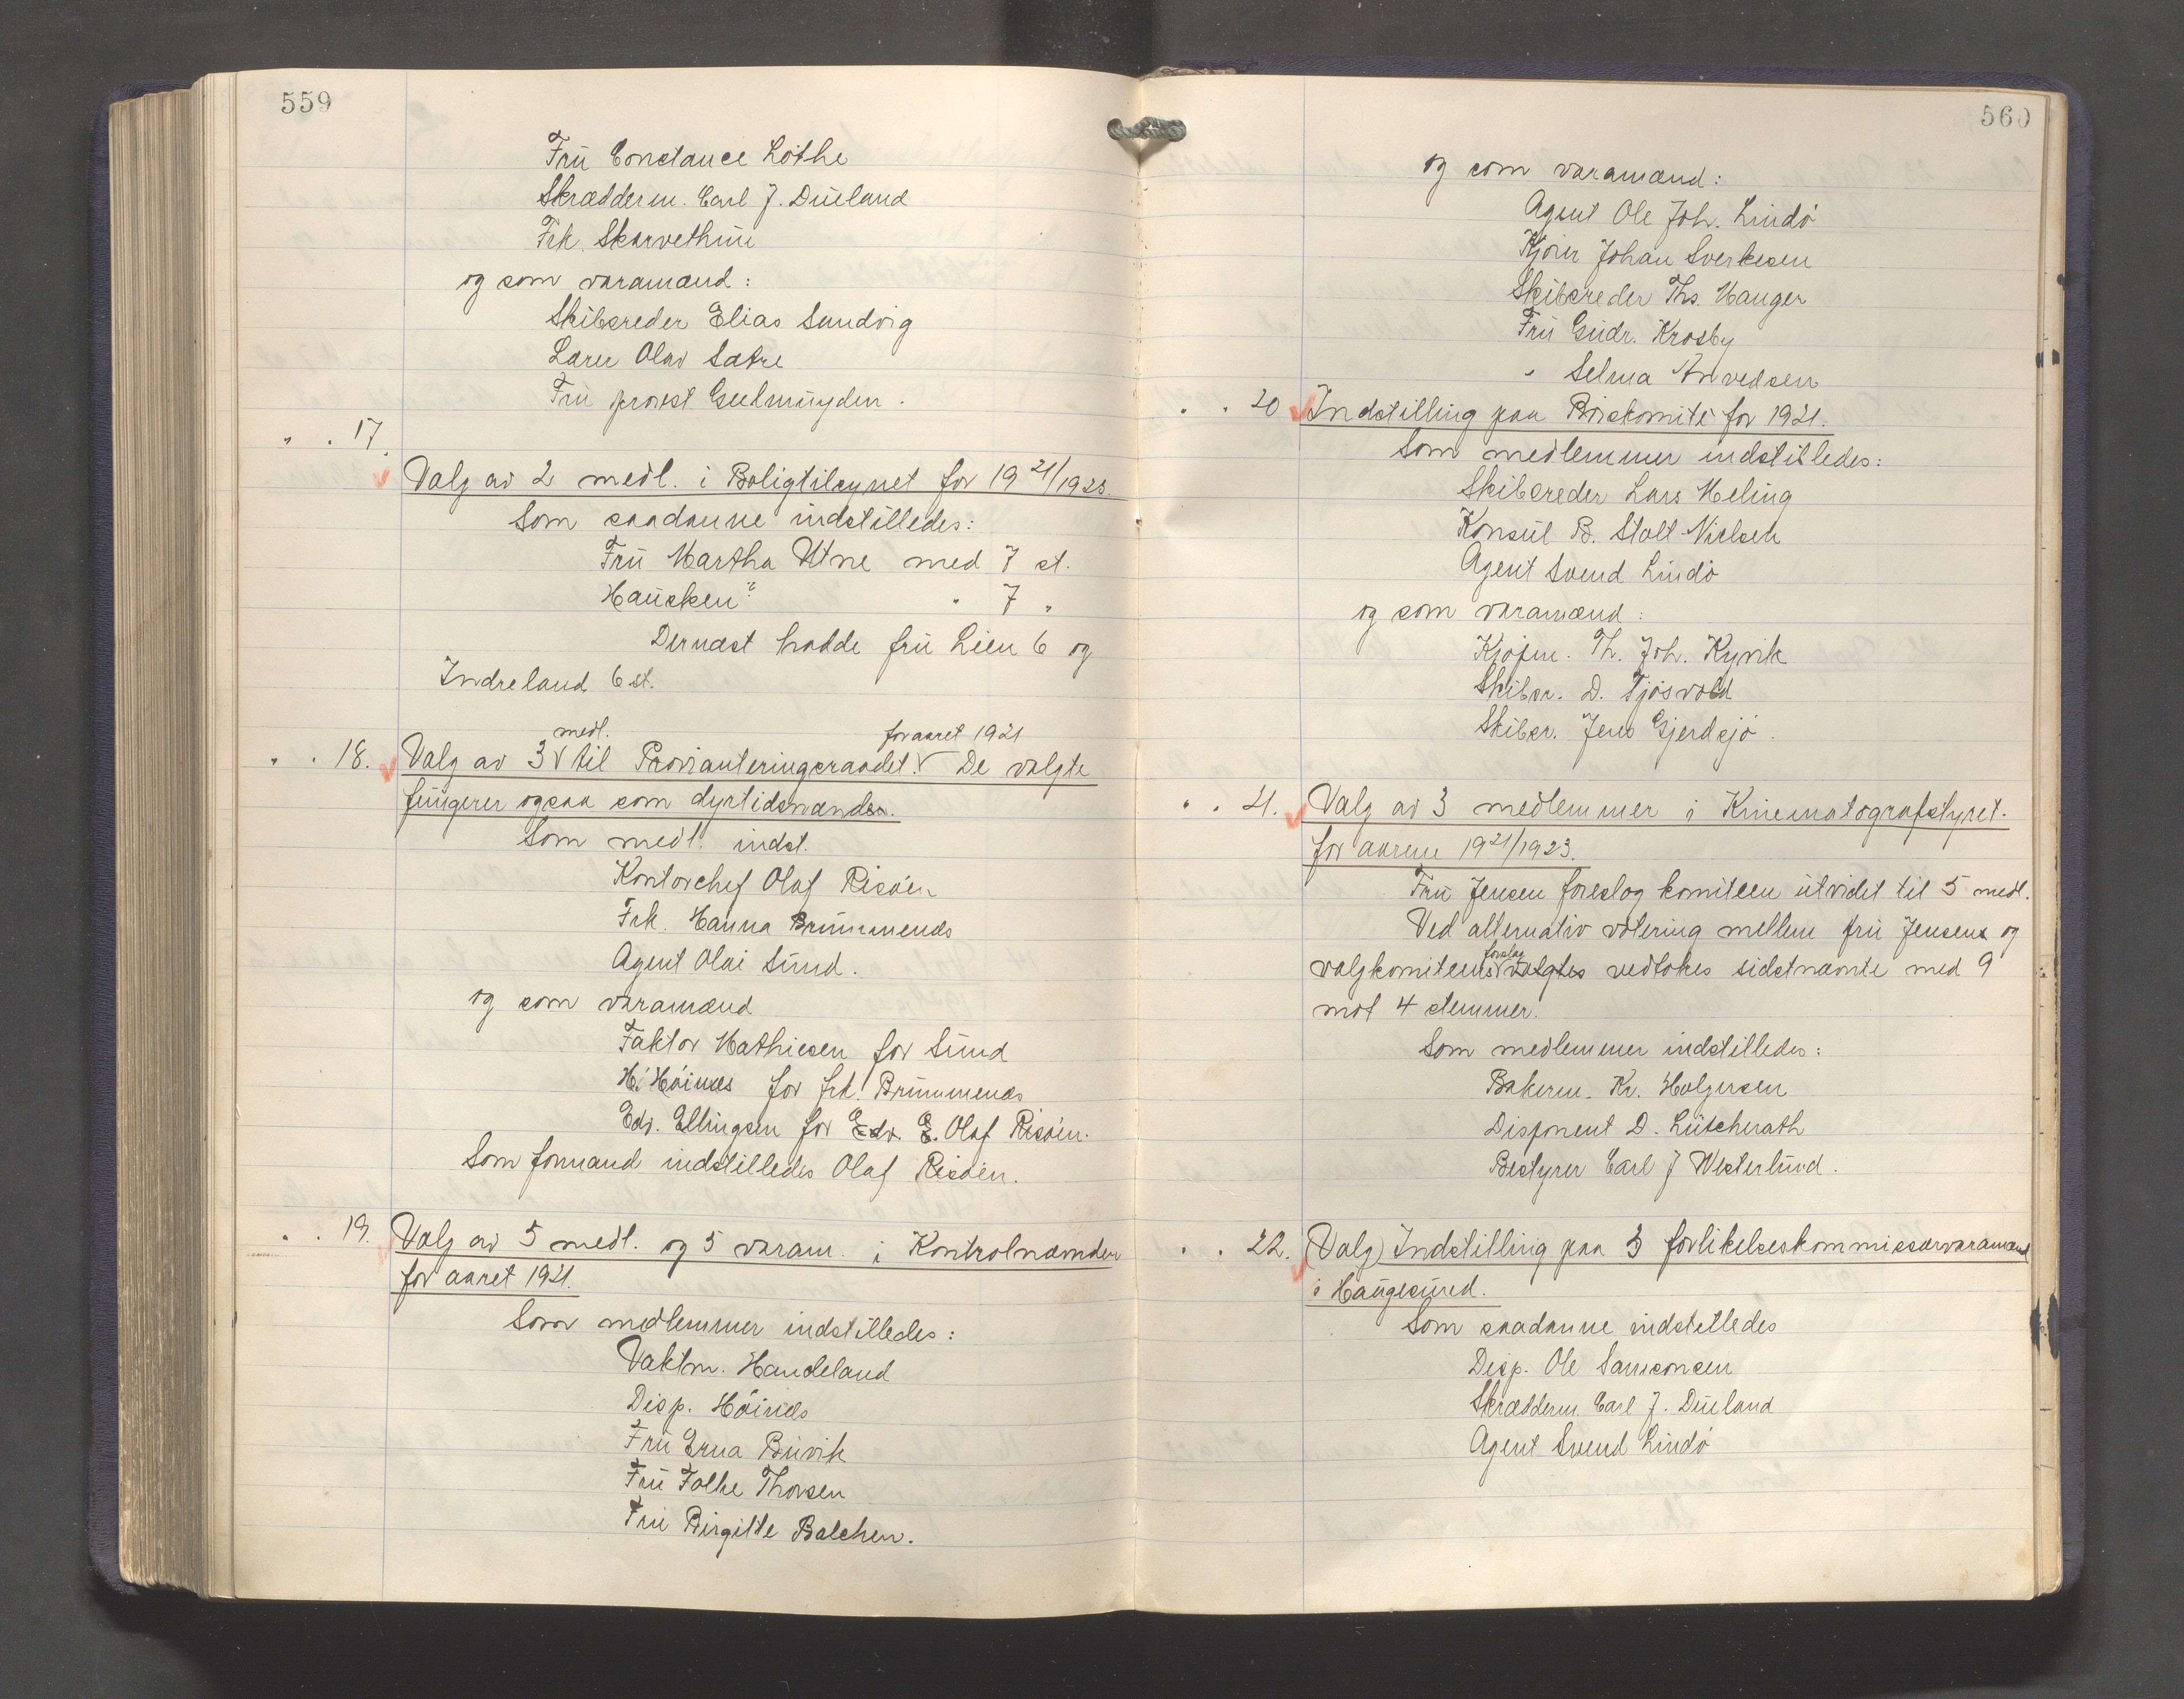 559
Frü Constance Lothe
Skrædderm. Carl J. Düeland
Frk. Skarvethün
og som varamænd:
Skibsreder Elias Sundvig
Lærer Olav Sætre
Frü provst Gulmüyden.
" . 17.
Valg av 2 medl. i Boligtilsynet for 1921/1923.
Som saadanne indstilledes:
Frü Martha Utne med 7 st.
Haüsken? " 7 "
Dernæst hadde frü Lien 6 og
Indreland 6 st.
medl. for aaret 1921
" . 18. Valg av 3 V til Provianteringsraadet. V De valgte
füngerer ogsaa som dyrtidsnævnder.
Som medl. indst.
Kontorchef Olaf Risöen
Frk. Hanna Brümmenæs
Agent Olai Sünd.
og som varamænd
Faktor Mathiesen for Sünd
H. Höinæs for frk. Brümmenæs
Edv. Ellingsen for Edv. E. Olaf Risöen.
Som formand indstilledes Olaf Risöen.
" . 19. Valg av 5 medl. og 5 varam. i Kontrolnævnden
for aaret 1921.
Som medlemmer indstilledes:
Vaktm. Handeland
Disp. Höinæs
Frü Erna Büvik
Frü Folke Thorsen
Frü Birgitte Balchen.
560
og som varamænd:
Agent Ole Joh. Lindö
Kjörer Johan Sverkesen
Skibsreder Ths. Hauger
Frü Güdr. Krosby
" Selma Anvedsen
" . 20 Indstilling paa Priskomité for 1921.
Som medlemmer indstilledes:
Skibsreder Lars Meling
Konsül B. Stolt-Nielsen
Agent Svend Lindö
og som varamænd:
Kjøpm. Th. Joh. Kyvik
Skibsr. D. Tjösvold
Skibsr. Jens Gjerdsjö.
" . 21. Valg av 3 medlemmer i Kinematografstyret.
for aarene 1921/1923.
Frü Jensen foreslog komiteen ütvidet til 5 medl.
Ved alternativ votering mellem frü Jensens og
forslag
valgkomiteens V valgtes vedtokes sidstnævnte med 9
mot 4 stemmer.
Som medlemmer indstilledes:
Bakerm. Kr. Holgersen
Disponent D. Lütcherath
Bestyrer Carl J Westerlünd.
" . 22. (Valg) Indstilling paa 3 forlikelseskommissærvaramænd
i Haugesünd.
Som saadanne indstilledes
Disp. Ole Samsonsen
Skrædderm. Carl J. Düeland
Agent Svend Lindö